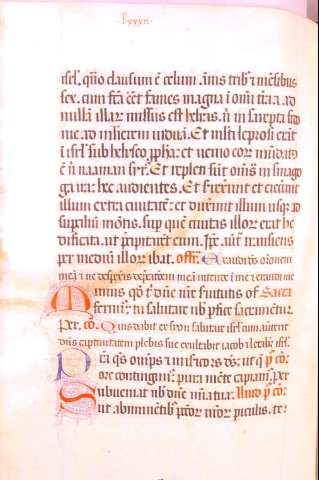 lxxxii
isrl'. qn̄o clausum ē celum . annis trib' ⁊ mēsibus
sex. cum fc̄a eēt fames magna ī om̄i t̄ra. ad
nullā illar missus est helias. nı̄ in sarepta sido
nie. ad mulierem uiduā. Et multi leprosi erāt
ī isrl' sub heliseo ꝓpha. et nemo eor mūdat'
ē nı̄ naaman sir'. Et repleti sūt om̄s in sinago
ga ira. hec audientes. Et surrexerūt et eiecerūt
illum extra ciuitatē. et duxerūt illum usq; ad
supciliū mōtis. sup quē ciuitas illor erat he
dificata. ut p̄cipitarēt eum. Ip̄e aut̄ transiens
per mediū illor ibat. off'. Exaudi d's or̄onem
meā ⁊ ne despexis dep̄cationem meā intende ī me ⁊ exaudi me
Munus qd' t' dn̄e nr̄e seruitutis off' Sacra
ferim'. tu salutare nb' ꝑfice sacramētum.
Per. co. Quis dabit ex syon salutare isrl' cum auerterit
dn̄s captiuitatem plebis sue exultabit iacob ⁊ letabit' isrl'.
Prā qs om̄ps ⁊ misericors d's. ut q̄ p̄ co.
ore contingim'. pura mēte capiam'. per
Subueniat nb' dn̄e mīa tua. Alia p̄ co.
ut ab imminētib' pctor nr̄or piculis. te⸱